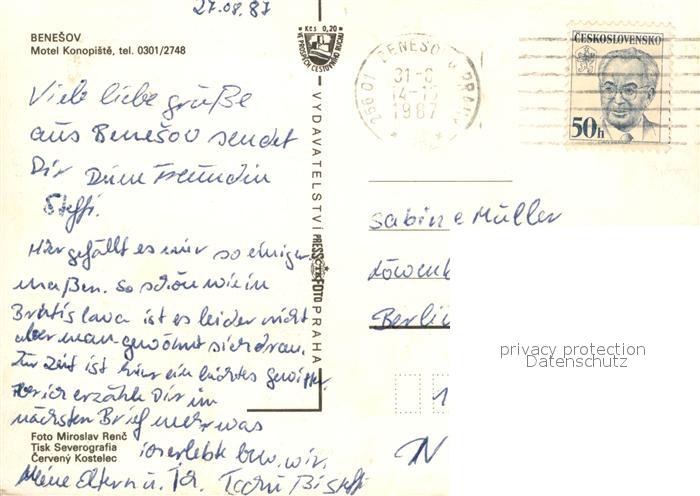 27.08.87
BENEŠOV
Motel Konopiště, tel. 0301/2748
Viele liebe grüße
aus Benešov sendet
Dir Deine Freundin
Steffi.
Hier gefällt es mir so einiger
maßen. So schön wie in
Bratislava ist es leider nicht
aber man gewöhnt sich dran.
Zur Zeit ist hier ein leichtes gewitter.
erzähle Dir im
nächsten Brief mehr was
ich erlebt bzw. wir.
Meine Eltern u. Ich. Steffi
Foto Miroslav Renč
Tisk Severografia
Červený Kostelec
Kčs 0,20
VYDAVATELSTVÍ PRESSFOTO PRAHA
256 01 BENEŠOV U PRAHY
31-8
1987
ČESKOSLOVENSKO
50h
Sabine Müller
Berlin
1
privacy protection
Datenschutz